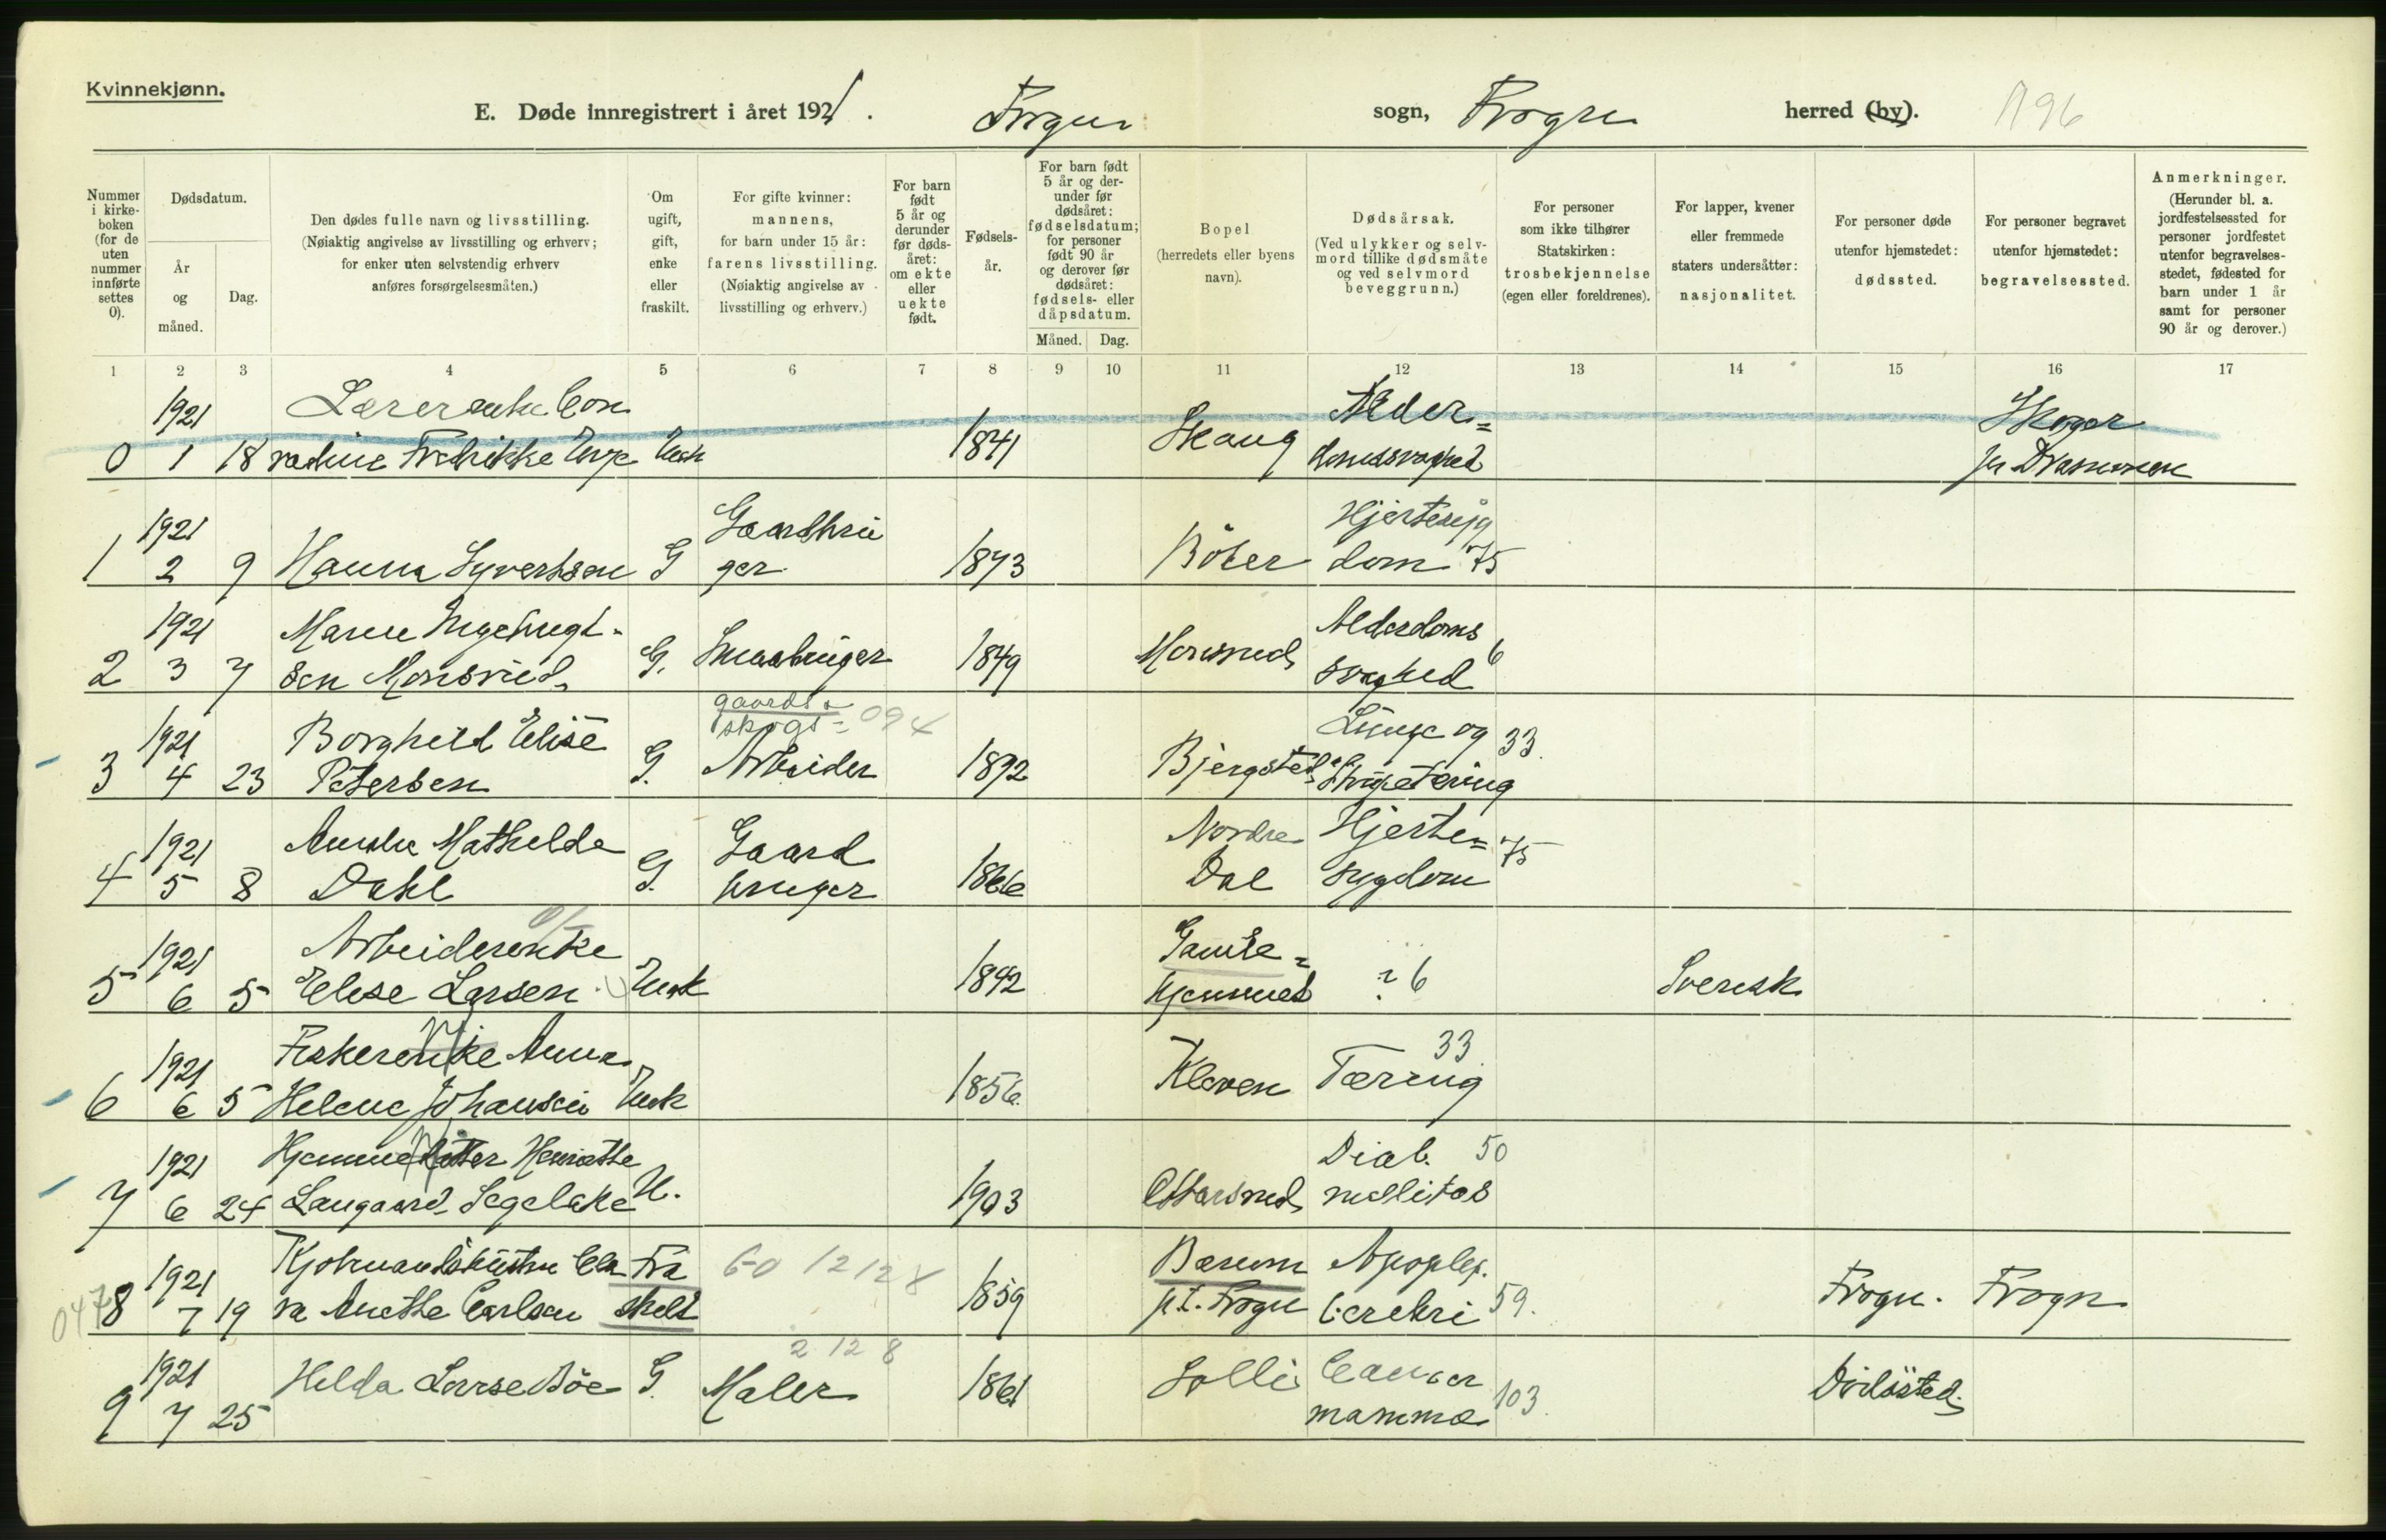 Kvinnekjønn.
E. Døde innregistrert i året 1921. Frogn sogn, Frogn herred (by). 1196
Nummer i kirkeboken (for de uten nummer innførte settes 0).
Dødsdatum.
År og måned.
Dag.
Den dødes fulle navn og livsstilling. (Nøiaktig angivelse av livsstilling og erhverv; for enker uten selvstendig erhverv anføres forsørgelsesmåten.)
Om ugift, gift, enke eller fraskilt.
For gifte kvinner: mannens, for barn under 15 år: farens livsstilling. (Nøiaktig angivelse av livsstilling og erhverv.)
For barn født 5 år og derunder før dødsåret: om ekte eller uekte født.
Fødselsår.
For barn født 5 år og derunder før dødsåret: fødselsdatum; for personer født 90 år og derover før dødsåret: fødsels- eller dåpsdatum.
Måned. Dag.
Bopel (herredets eller byens navn).
Dødsårsak. (Ved ulykker og selvmord tillike dødsmåte og ved selvmord beveggrunn.)
For personer som ikke tilhører Statskirken: trosbekjennelse (egen eller foreldrenes).
For lapper, kvener eller fremmede staters undersåtter: nasjonalitet.
For personer døde utenfor hjemstedet: dødssted.
For personer begravet utenfor hjemstedet: begravelsessted.
Anmerkninger. (Herunder bl. a. jordfestelsessted for personer jordfestet utenfor begravelsesstedet, fødested for barn under 1 år samt for personer 90 år og derover.)
1 2 3 4 5 6 7 8 9 10 11 12 13 14 15 16 17
1921 Lærerenke Con Alder= Skoger
0 1 18 radine Fredrikke Unge Enk 1841 Skaug domssvaghed pr Drammen
1921 Gaardbru Hjertesyg
1 2 9 Hanna Syvertsen G ger 1873 Böler dom 75
1921 Maren Ingebrigt- Alderdoms
2 3 7 sen Monsrud G. Smaabruger 1849 Monsrud svaghed 6
gaards &
skogs= 094
1921 Borghild Elise Lunge og 33
3 4 23 Petersen G. Arbeider 1892 Bjergsted Strupetæring
1921 Amalie Mathilde Gaard Nordre Hjerte= 75
4 5 8 Dahl G. bruger 1866 Dal sygdom
1921 Arbeiderenke Gamle=
5 6 5 Elise Larsen Enk 1842 hjemmet ? 6 Svensk
1921 Fiskerenke Anna 33
6 6 5 Helene Johansen Enk 1856 Kleven Tæring
1921 Hjemmedatter Henriette Diab. 50
7 6 24 Langaard Segelcke U. 1903 Ottarsrud mellitus
1921 Kjøbmandshustru Cla Fra 60 12128 Bærum Apoplex.
047 8 7 19 ra Anethe Carlsen skilt 1859 p.t. Frogn cerebri 59. Frogn. Frogn
2 12 8
1921 Hilda Lovise Böe G. Maler 1861 Solli Cancer
9 7 25 mamma 103